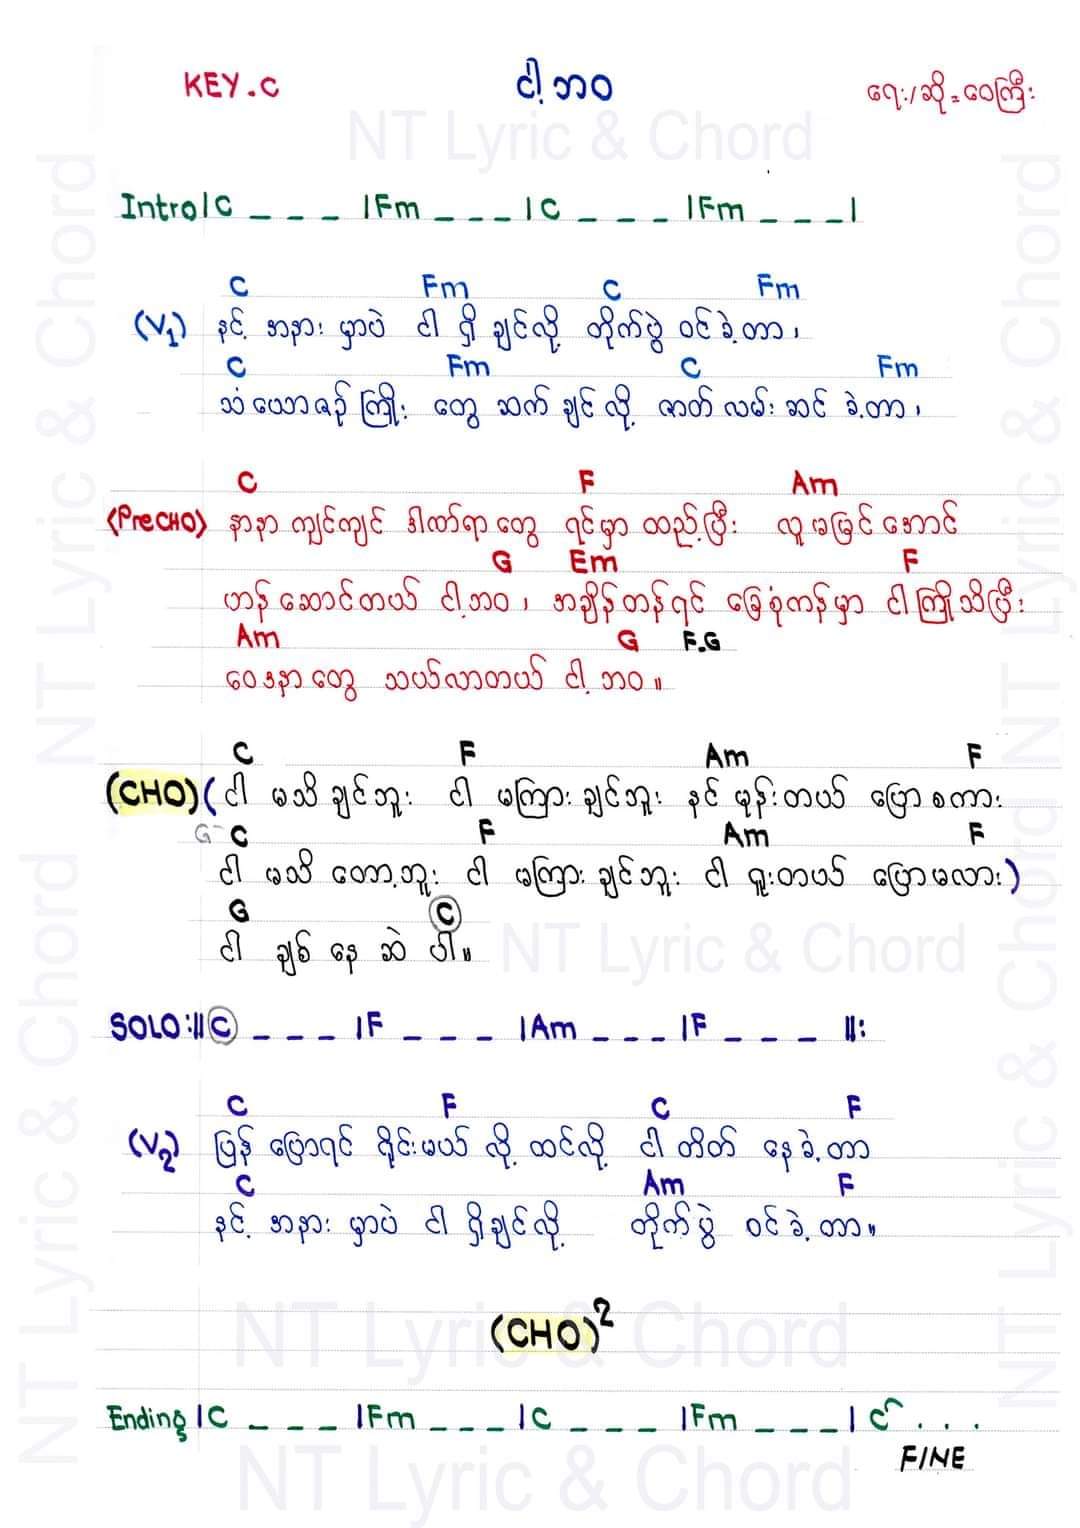 KEY.C ငါ့ဘဝ ရေး/ဆို = ဝေကြီး
NT Lyric & Chord
Intro|C _ _ _ |Fm _ _ _ |C _ _ _ |Fm _ _ _|
C Fm C Fm
(V1) နင့် အနား မှာပဲ ငါ ရှိ ချင်လို့ တိုက်ပွဲ ဝင်ခဲ့တာ၊
C Fm C Fm
သံယောဇဉ်ကြိုး တွေ ဆက် ချင် လို့ ဇာတ်လမ်း ဆင် ခဲ့တာ၊
C F Am
(PreCHO) နာနာ ကျင်ကျင် ဒါဏ်ရာတွေ ရင်မှာ ထည့်ပြီး လူမမြင် အောင်
G Em F
ဟန်ဆောင်တယ် ငါ့ဘဝ၊ အချိန်တန်ရင် ခြေစုံကန်မှာ ငါကြိုသိပြီး
Am G F.G
ဝေဒနာတွေ သယ်လာတယ် ငါ့ ဘဝ။
C F Am F
(CHO) (ငါ မသိ ချင်ဘူး ငါ မကြား ချင်ဘူး နင် မုန်းတယ် ပြော စကား
G C F Am F
ငါ မသိ တော့ဘူး ငါ မကြား ချင်ဘူး ငါ ရူးတယ် ပြောမလား)
G C
ငါ ချစ် နေ ဆဲ ပါ။
NT Lyric & Chord
SOLO:||C _ _ _ |F _ _ _ |Am _ _ _ |F _ _ _ ||:
C F C F
(V2) ပြန် ပြောရင် ရိုင်းမယ် လို့ ထင်လို့ ငါ တိတ် နေခဲ့တာ
C Am F
နင့် အနား မှာပဲ ငါ ရှိချင်လို့ တိုက်ပွဲ ဝင်ခဲ့တာ။
(CHO)2
NT Lyric & Chord
Ending |C _ _ _ |Fm _ _ _ |C _ _ _ |Fm _ _ _| C . . .
FINE
NT Lyric & Chord
NT Lyric & Chord
NT Lyric & Chord
NT Lyric & Chord
NT Lyric & Chord